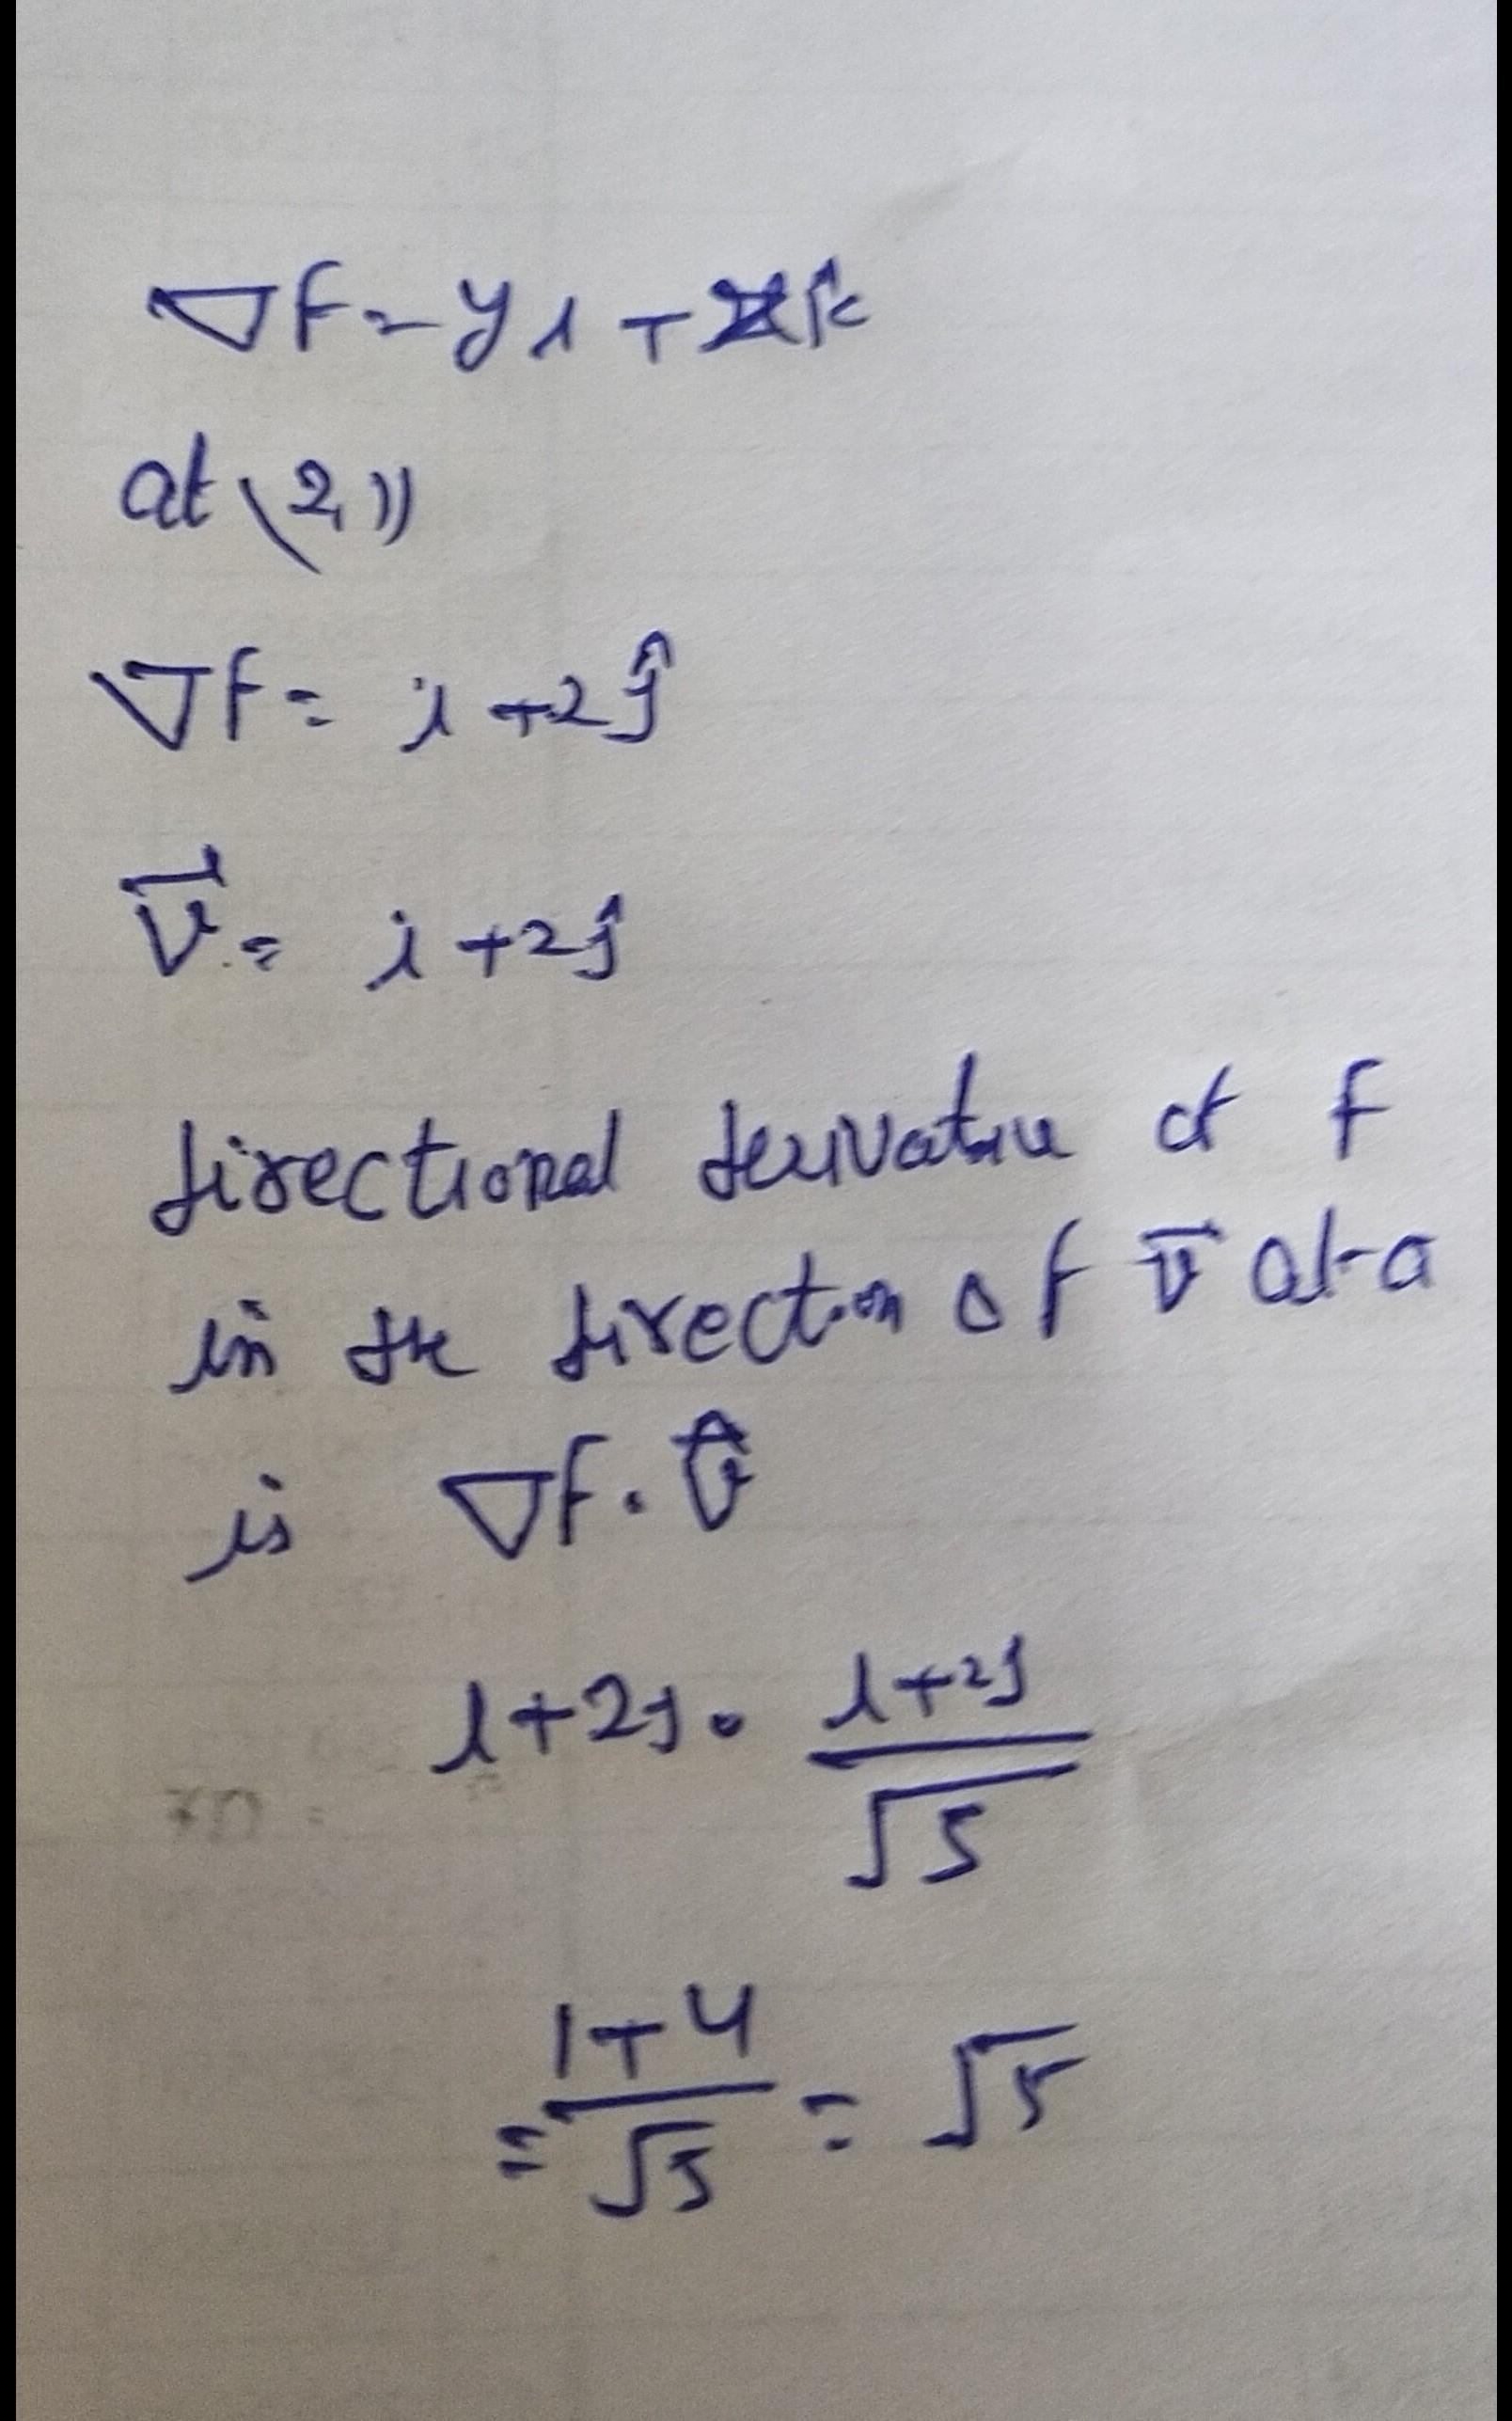 ∇f = yi + xk̂
at (2,1)
∇f = i + 2ĵ
v⃗ = i + 2ĵ
directional derivative of f
in the direction of v̄ at a
is ∇f · v̂
i + 2j · (i + 2j)/√5
= (1+4)/√5 = √5